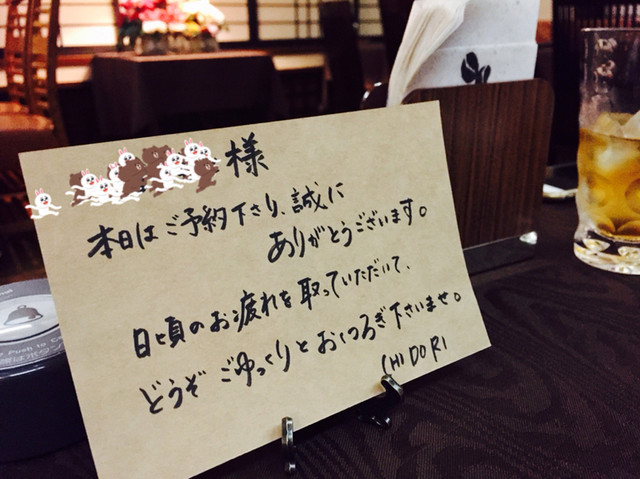 様
本日はご予約下さり、誠に
ありがとうございます。
日頃のお疲れを取っていただいて、
どうぞごゆっくりとおくつろぎ下さいませ。
CHIDORI